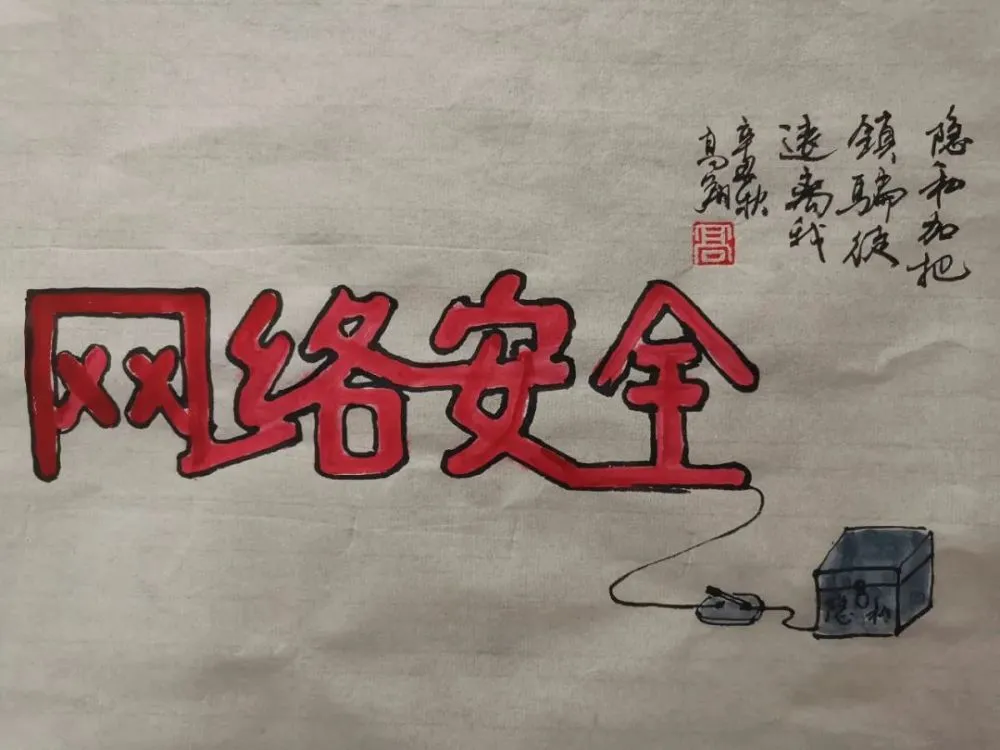 隐私加把
鎖騙徒
遠离我
辛丑秋
高翔
高
网络安全
隐私